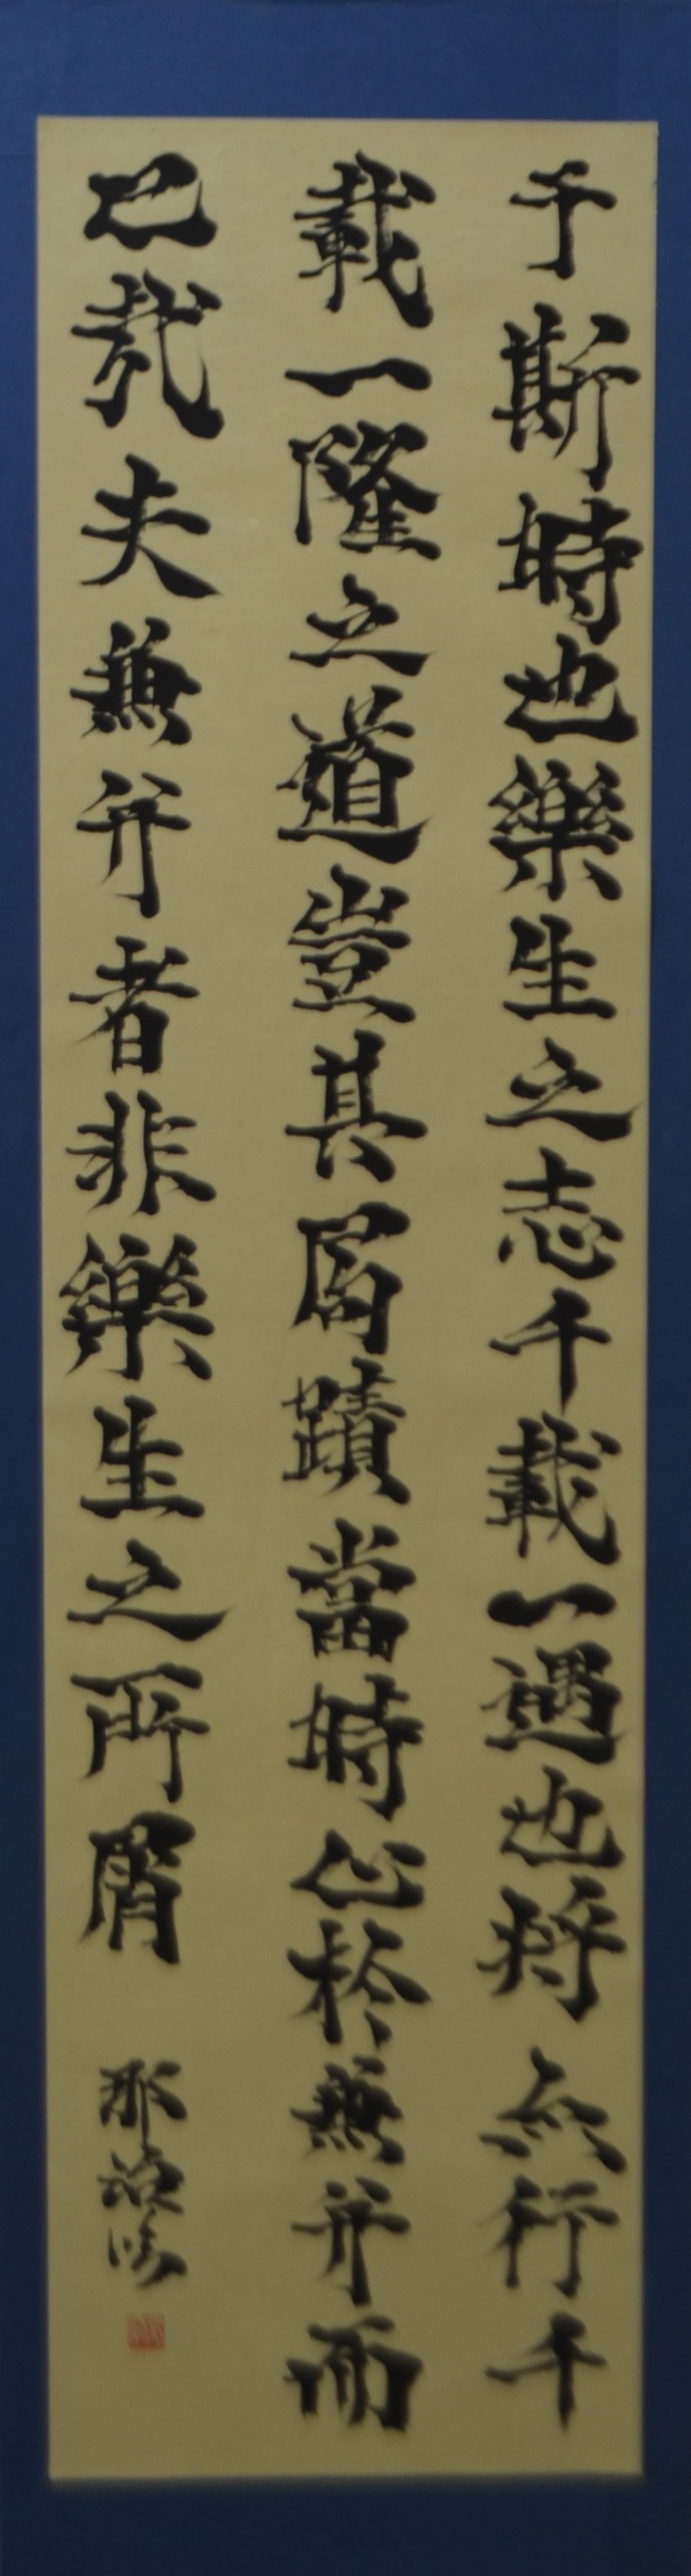 于斯時也樂生之志千載一遇也将亦行千
載一隆之道豈其局蹟當時心於兼并而
已哉夫兼并者非樂生之所屑